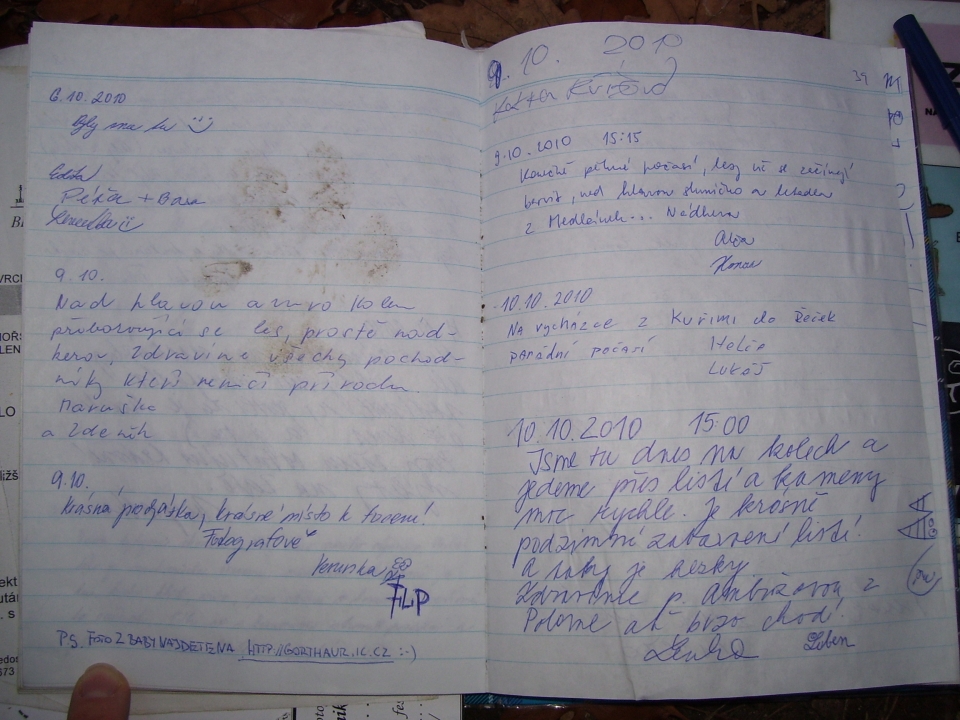 6.10.2010
Byly sme tu
Edita
Péťa + Bára
9.10.
Nad hlavou a mezi kolem
probarvující se les, prostě nád-
hera. Zdravíme všechny pochod-
níky kteří neničí přírodu.
Maruška
a Zdeněk
9.10.
krásná procházka, krásné místo k focení!
Fotografové
Verunka
FILIP
P.S. FOTO Z BABY NAJDETE NA HTTP://GORTHAUR.IC.CZ :-)
9.10. 2010
39
9.10.2010 15:15
Konečně pěkné počasí, lesy už se začínají
barvit, nad hlavou sluníčko a letadla
z Medlánek... Nádhera
10.10.2010
Na vycházce z Kuřimi do Řeček
parádní počasí
Lukáš
10.10.2010 15:00
Jsme tu dnes na kolech a
jedeme přes listí a kameny
moc rychle. Je krásně
podzimní zabarvení listí!
a taky je hezky
Zdravíme p. Ambrožovou z
ať brzo chodí.
Lenka